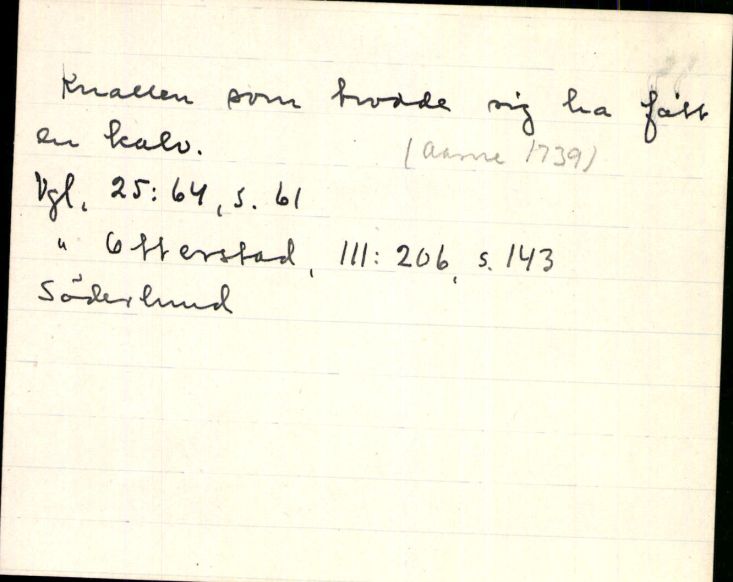 Knallen som trodde sig ha fått
en kalv.
(Aarne 1739)
Vgl, 25:64, s. 61
" Otterstad, III: 206, s. 143
Söderlund